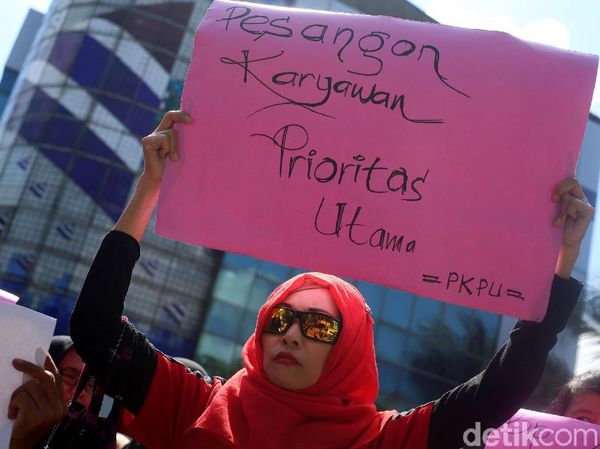 Pesangon
Karyawan
Prioritas
Utama
=PKPU=
detikcom